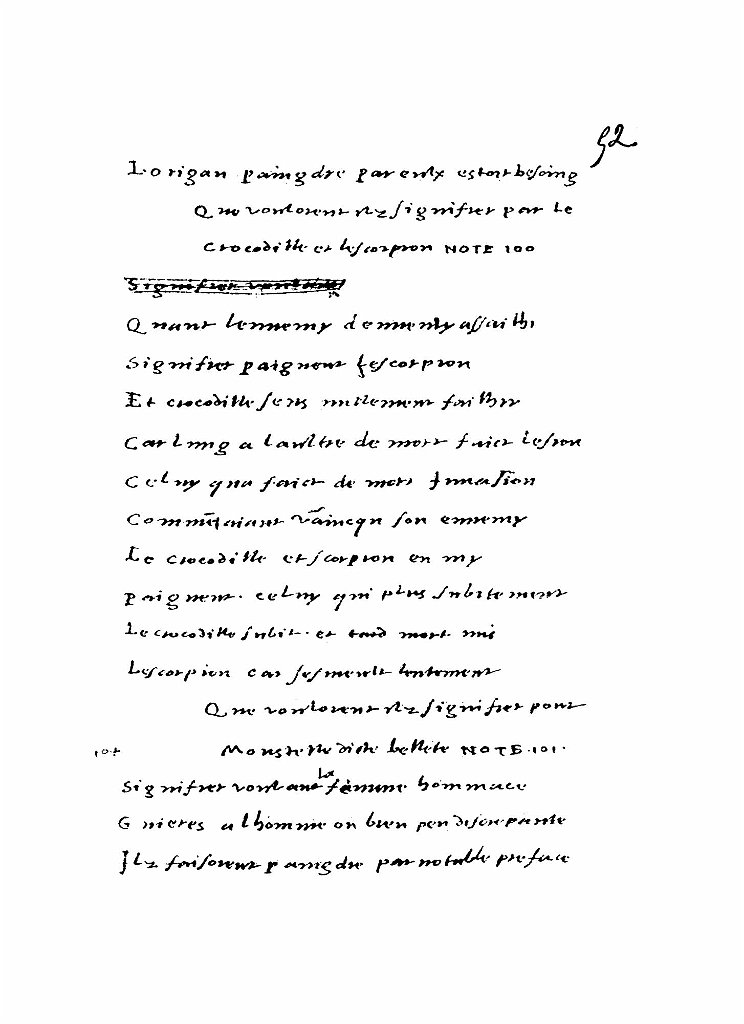 52
Lorigan paingdre par eulx estoit besoing
Que vouloient ilz signifier par le
Crocodille et lescorpion NOTE 100
Signifier voulant
Quant lennemy dennemy assailhi
Signifier paignent lescorpion
Et crocodille sens nullement failhir
Car lung a laultre de mort faict lesion
Celuy qua faict de mort
Comm vaincqu son ennemy
Le crocodille et scorpion en my
paignent. celuy qui plus subitement
Le crocodille subit. et tard mort mis
Lescorpion car se meult lentement
Que vouloient ilz signifier pour
Monstelle dicte bellete NOTE .101.
Signifier voulant la femme hommace
Guieres a lhomme ou bien peu discrepante
Ilz faisoient paingdre par notable preface